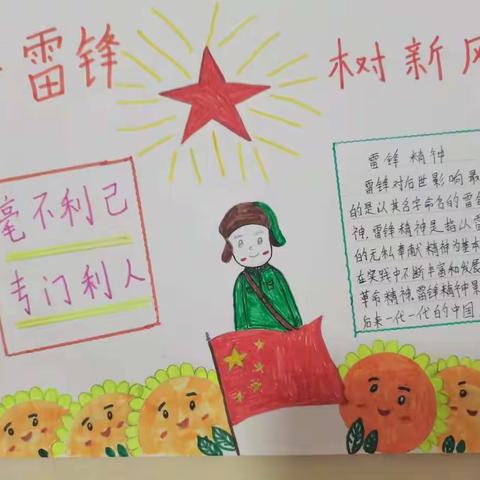 雷锋 树新风
毫不利己
专门利人
雷锋精神
雷锋对后世影响最
的是以其名字命名的雷锋
神,雷锋精神是指以雷
的无私奉献精神为基本
在实践中不断丰富和发展
革命精神,雷锋精神
后来一代一代的中国